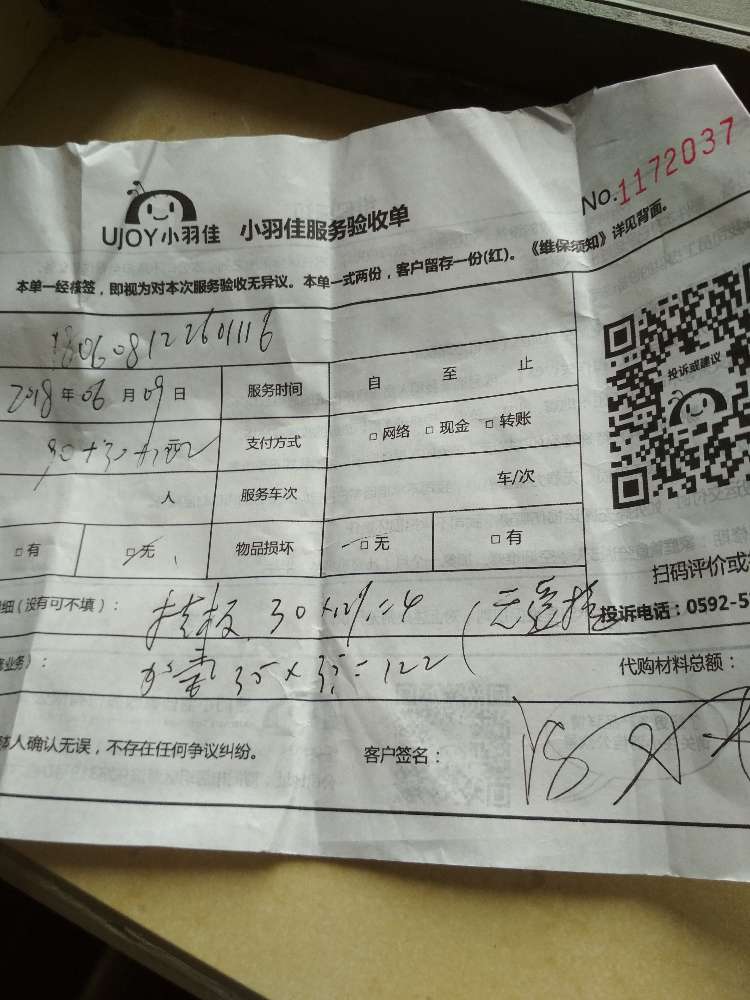 No.1172037
UJOY小羽佳 小羽佳服务验收单
本单一经核签，即视为对本次服务验收无异议。本单一式两份，客户留存一份(红)。《维保须知》详见背面。
180608122601116
2018年06月09日 服务时间 自 至 止
投诉或建议
支付方式 □网络 □现金 □转账
人 服务车次 车/次
□有 □无 物品损坏 □无 □有
扫码评价或
细（没有可不填）： 30×12%=4
投诉电话：0592-5
业务）： 35×3.5=122
代购材料总额：
人确认无误，不存在任何争议纠纷。 客户签名：